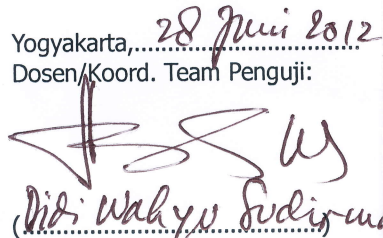 Yogyakarta, 28 Juni 2012
Dosen/Koord. Team Penguji:
(Didi Wahyu Sudirman)